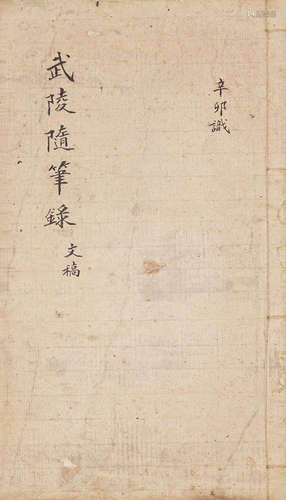 辛卯識
武陵隨筆錄 文稿